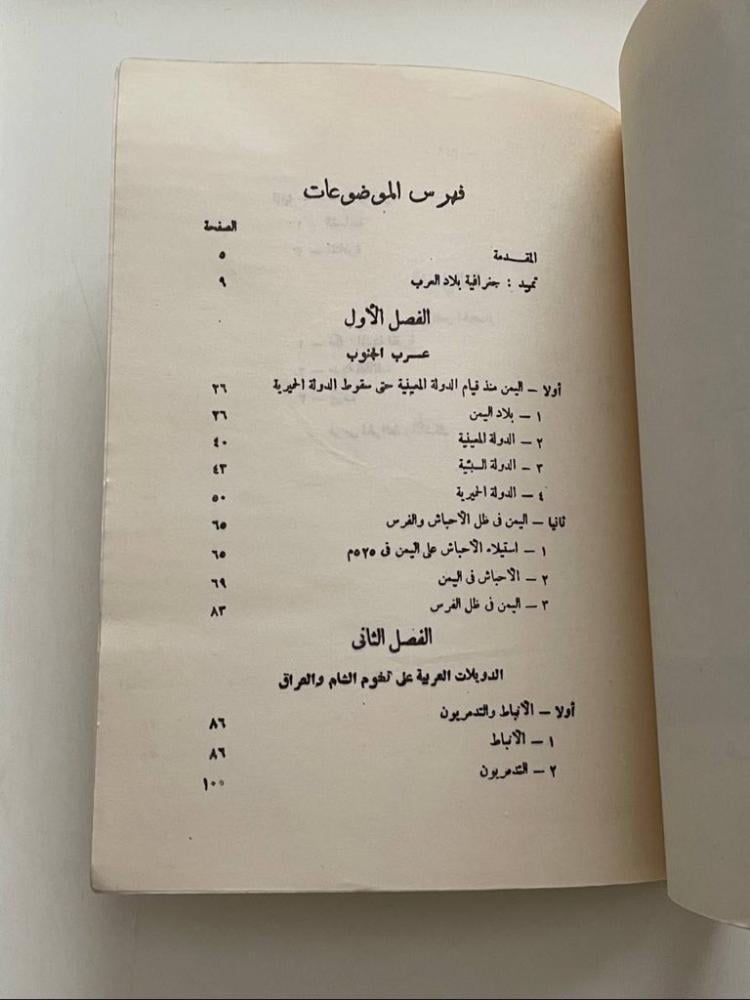 فهرس الموضوعات
الصفحة
المقدمة ٥
تمهيد : جغرافية بلاد العرب ٩
الفصل الأول
عرب الجنوب
أولا – اليمن منذ قيام الدولة المعينية حتى سقوط الدولة الحميرية ٢٦
١ – بلاد اليمن ٢٦
٢ – الدولة المعينية ٤٠
٣ – الدولة السبئية ٤٣
٤ – الدولة الحميرية ٥٠
ثانيا – اليمن فى ظل الأحباش والفرس ٦٥
١ – استيلاء الأحباش على اليمن فى ٥٢٥م ٦٥
٢ – الأحباش فى اليمن ٦٩
٣ – اليمن فى ظل الفرس ٨٣
الفصل الثانى
الدويلات العربية على تخوم الشام والعراق
أولا – الأنباط والتدمريون ٨٦
١ – الأنباط ٨٦
٢ – التدمريون ١٠٠